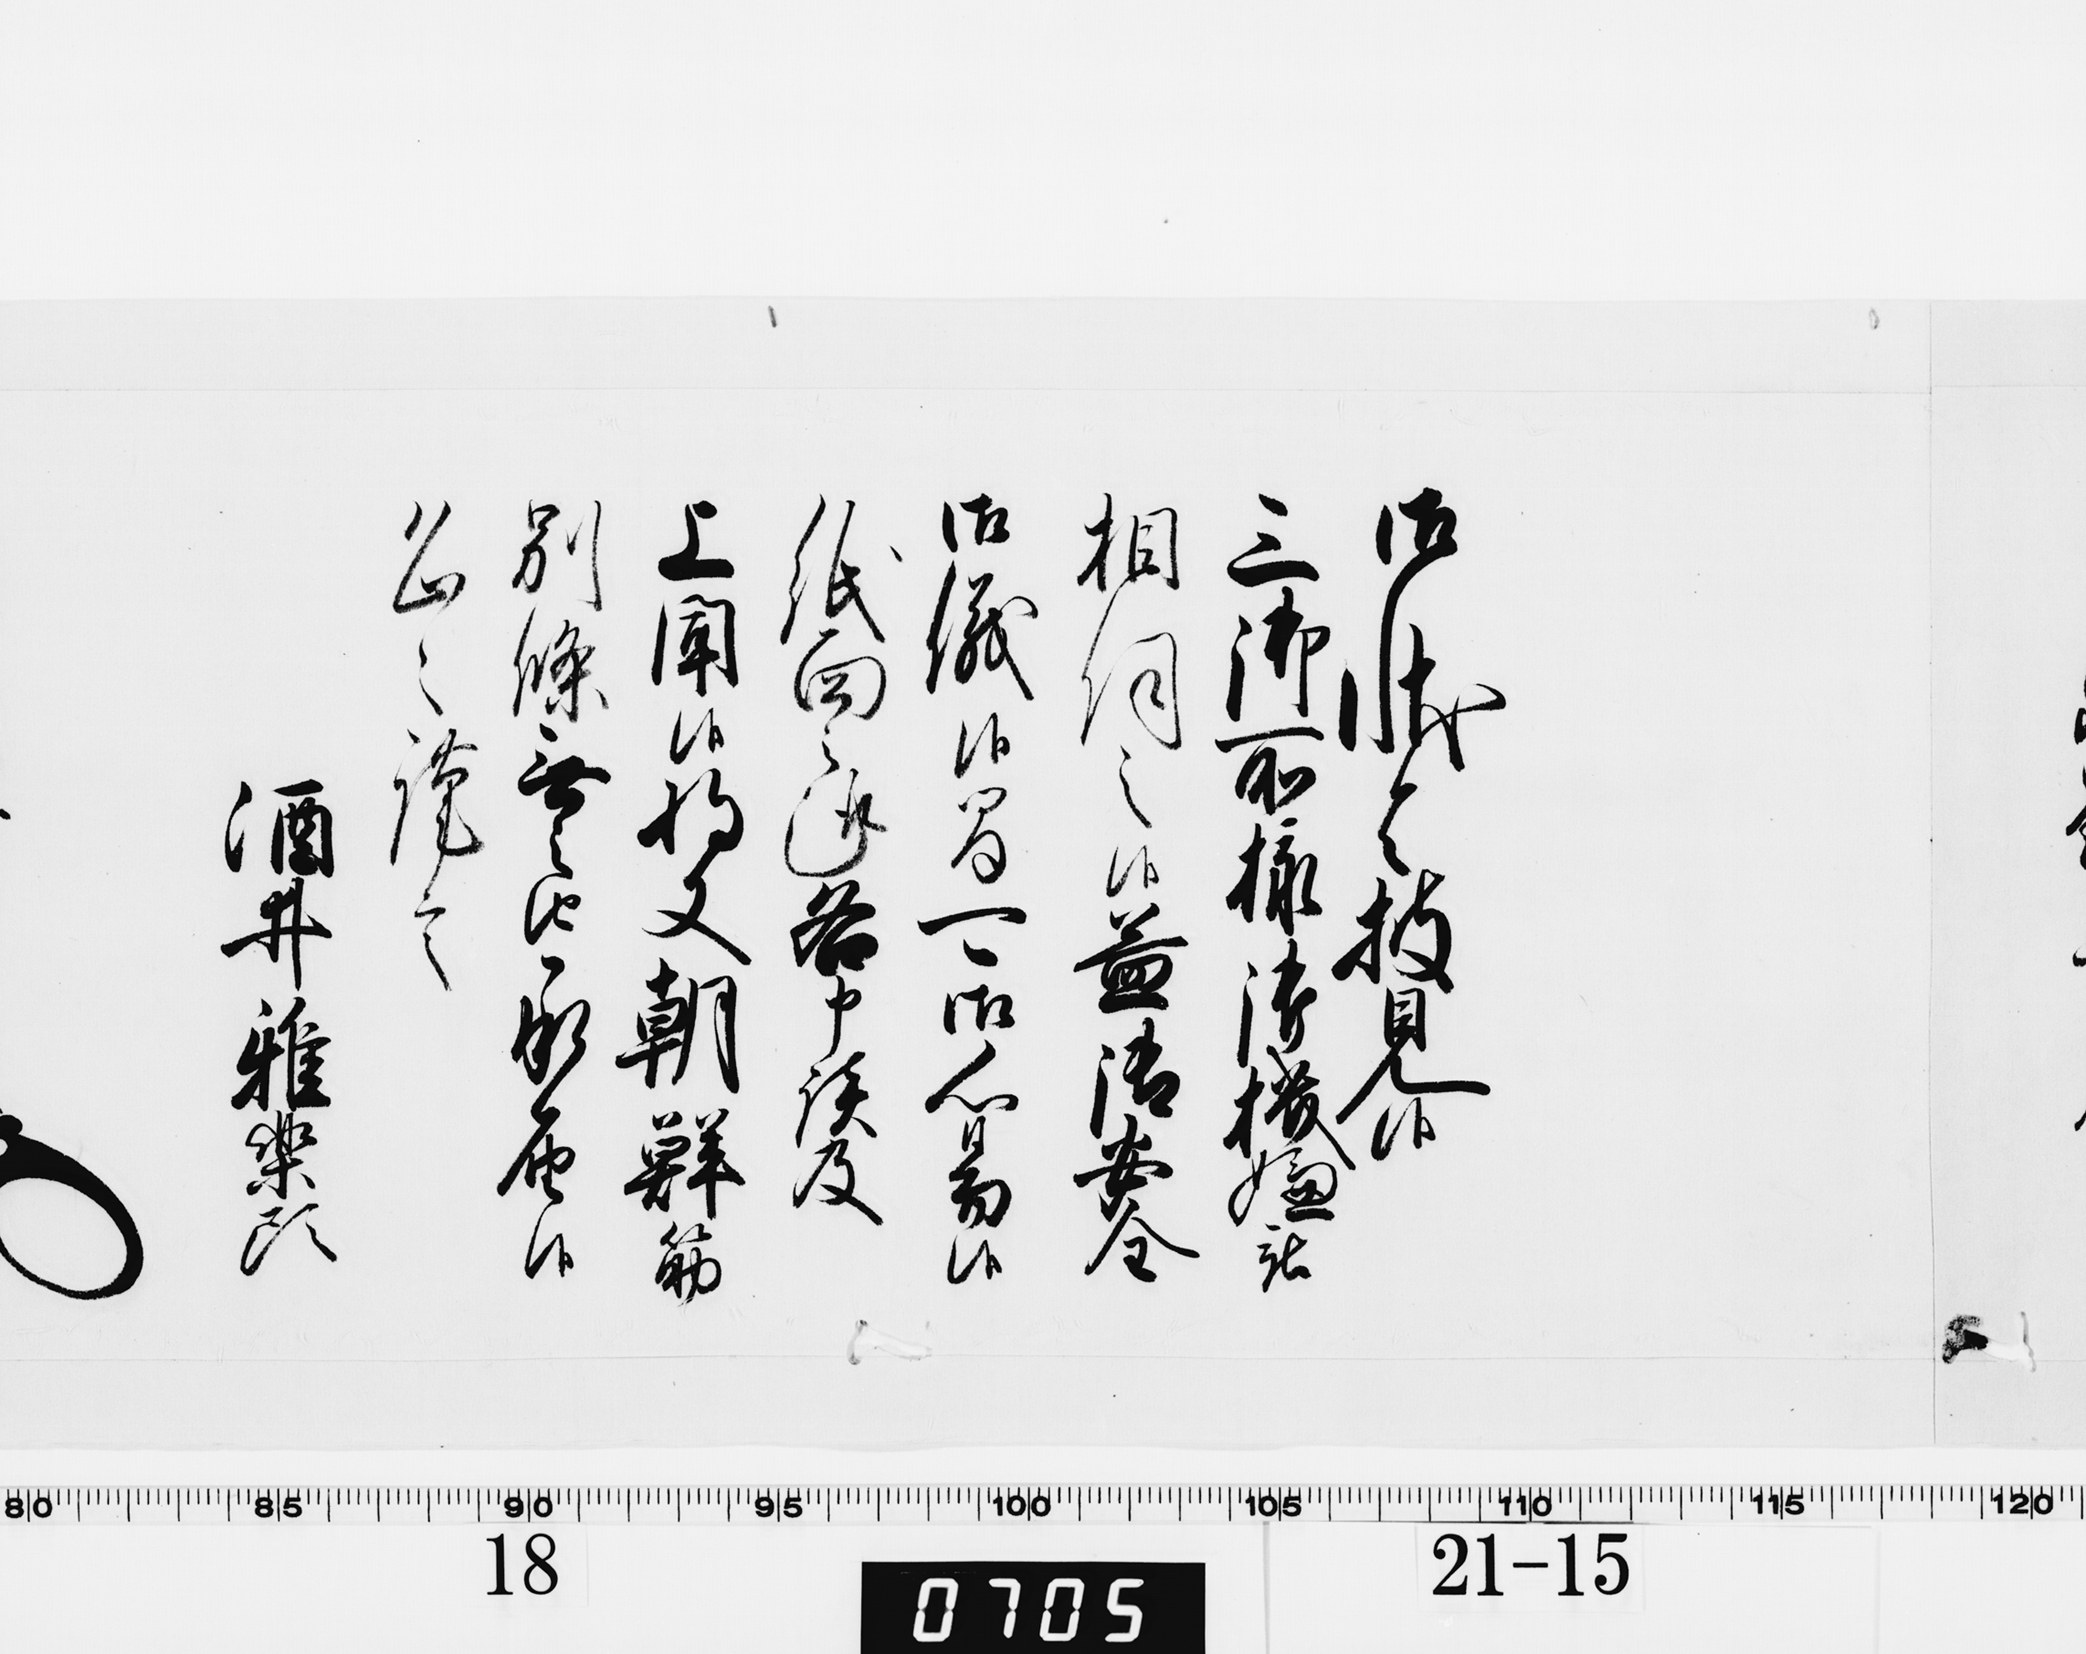 御状令披見候
三御所様御機嫌
相伺之候益御安全
御儀候間可御心易候
紙面之趣各申談及
上聞候将又朝鮮筋
別條無之由承届候
恐々謹言
酒井雅楽頭
80 85 90 95 100 105 110 115 120
18
0705
21-15